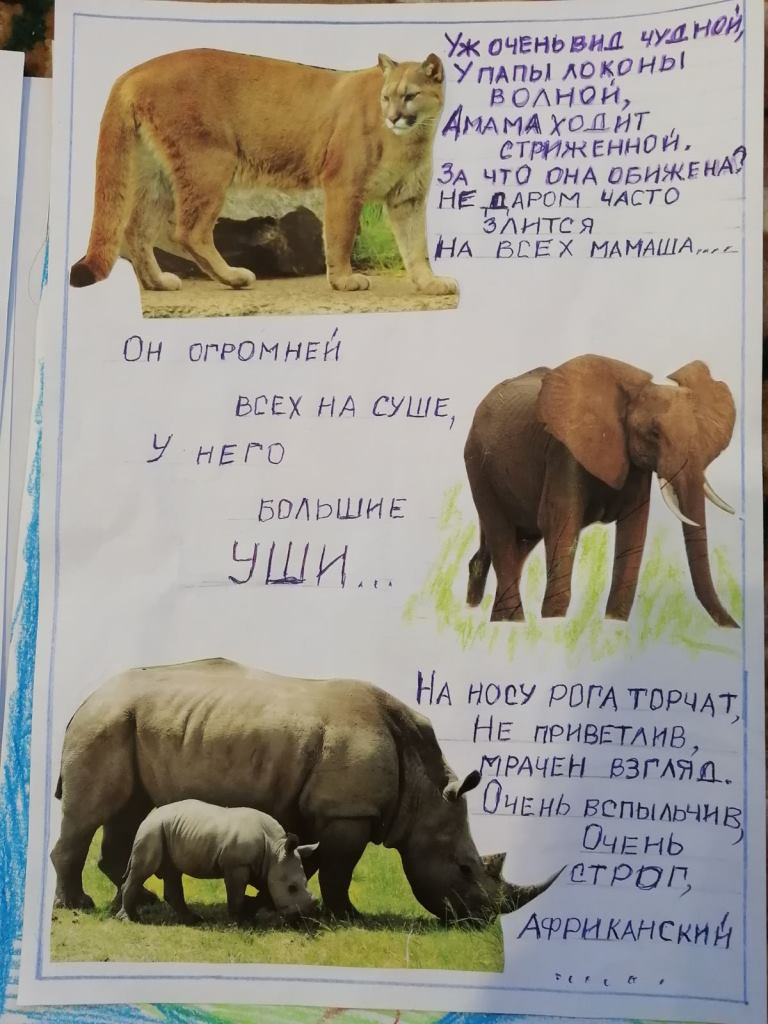 Уж очень вид чудной,
У папы локоны
волной,
А мама ходит
стриженной.
За что она обижена?
Не даром часто
злится
На всех мамаша....
Он огромней
всех на суше,
У него
большие
уши...
На носу рога торчат,
Не приветлив,
мрачен взгляд.
Очень вспыльчив,
Очень
строг,
Африканский
......